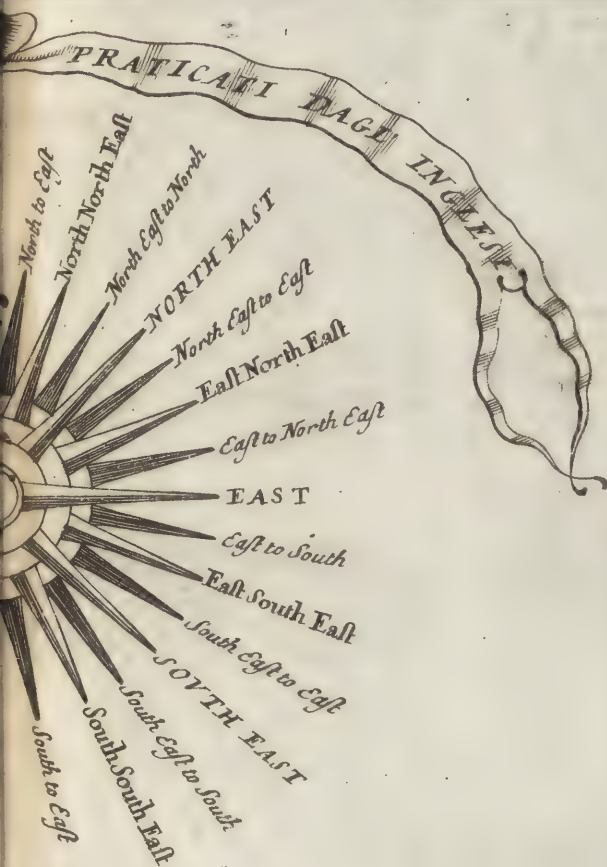 PRATICATI DAGL INGLESI
North to Eaſt
North North Eaſt
North Eaſt to North
NORTH EAST
North Eaſt to Eaſt
Eaſt North Eaſt
Eaſt to North Eaſt
EAST
Eaſt to South
Eaſt South Eaſt
South Eaſt to Eaſt
SOVTH EAST
South Eaſt to South
South South Eaſt
South to Eaſt